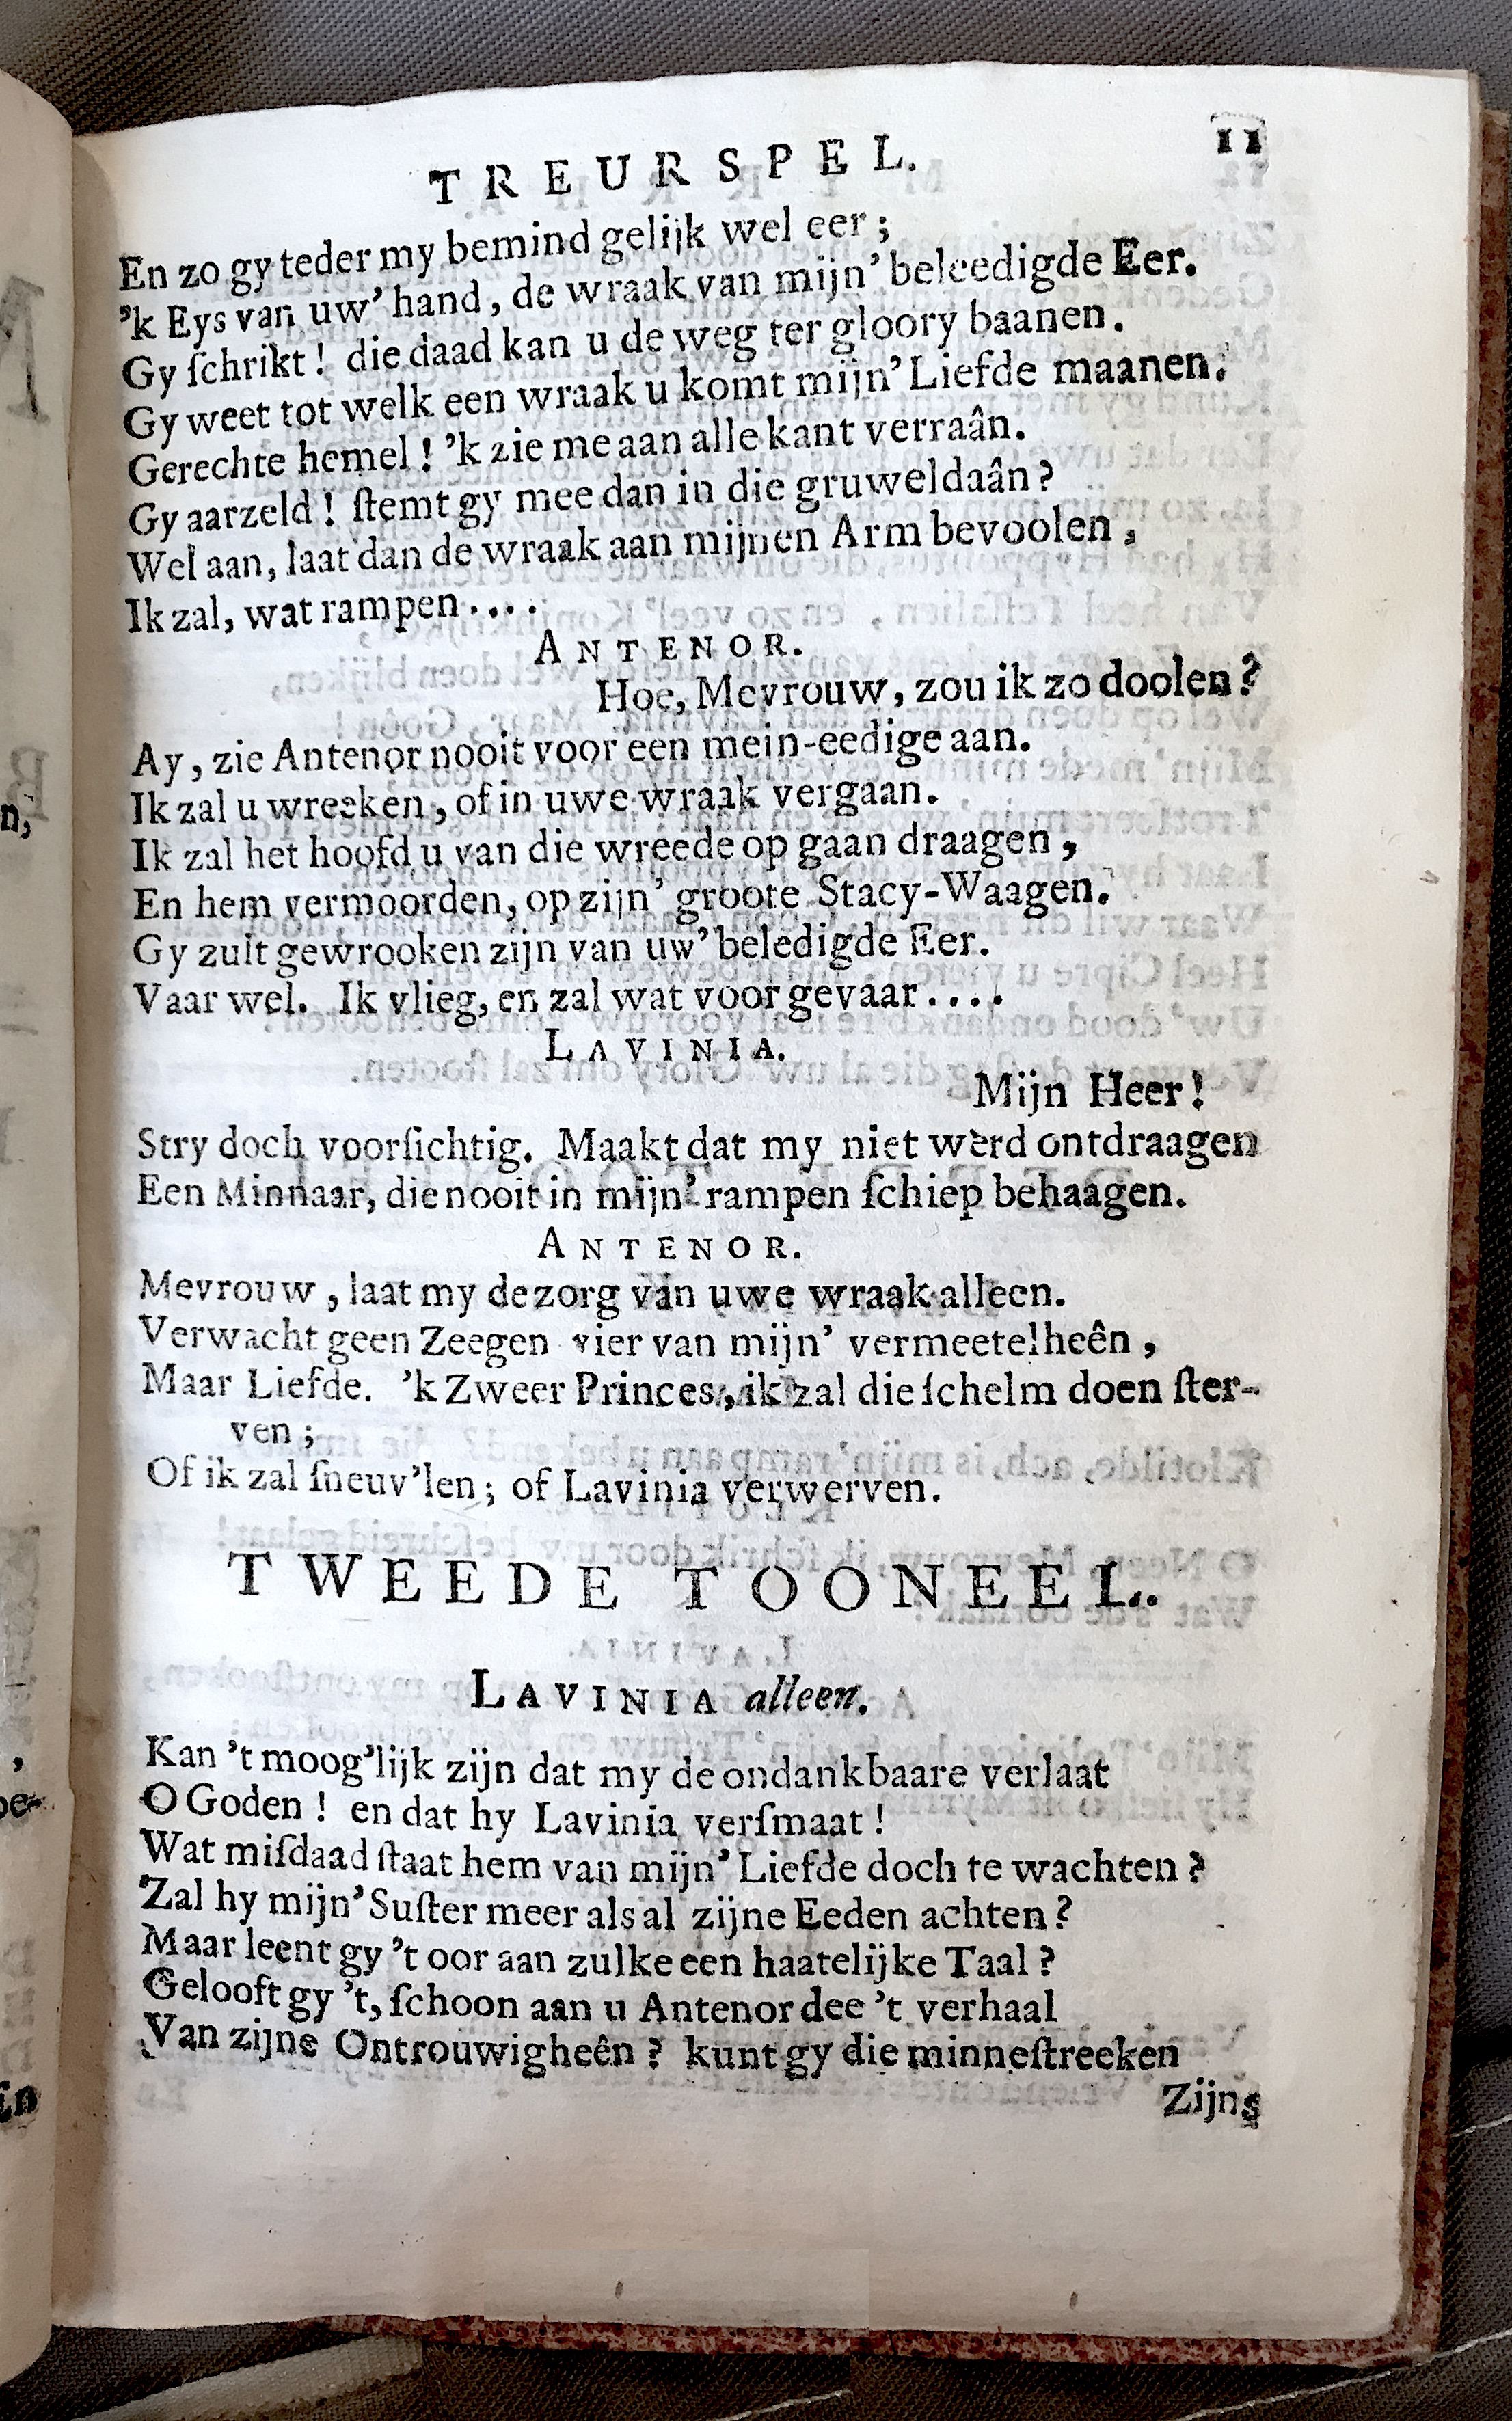 TREURSPEL. 11
En zo gy teder my bemind gelijk wel eer;
'k Eys van uw' hand, de wraak van mijn' beleedigde Eer.
Gy ſchrikt! die daad kan u de weg ter gloory baanen.
Gy weet tot welk een wraak u komt mijn' Liefde maanen.
Gerechte hemel! 'k zie me aan alle kant verraân.
Gy aarzeld! ſtemt gy mee dan in die gruweldaân?
Wel aan, laat dan de wraak aan mijnen Arm bevoolen,
Ik zal, wat rampen....
ANTENOR.
Hoe, Mevrouw, zou ik zo doolen?
Ay, zie Antenor nooit voor een mein-eedige aan.
Ik zal u wreeken, of in uwe wraak vergaan.
Ik zal het hoofd u van die wreede op gaan draagen,
En hem vermoorden, op zijn' groote Stacy-Waagen.
Gy zult gewrooken zijn van uw' beledigde Eer.
Vaar wel. Ik vlieg, en zal wat voor gevaar....
LAVINIA.
Mijn Heer!
Stry doch voorſichtig. Maakt dat my niet werd ontdraagen
Een Minnaar, die nooit in mijn' rampen ſchiep behaagen.
ANTENOR.
Mevrouw, laat my de zorg van uwe wraak alleen.
Verwacht geen Zeegen vier van mijn' vermeetelheên,
Maar Liefde. 'k Zweer Princes, ik zal die ſchelm doen ſter-
ven;
Of ik zal ſneuv'len; of Lavinia verwerven.
TWEEDE TOONEEL.
LAVINIA alleen.
Kan 't moog'lijk zijn dat my de ondankbaare verlaat
O Goden! en dat hy Lavinia verſmaat!
Wat miſdaad ſtaat hem van mijn' Liefde doch te wachten?
Zal hy mijn' Suſter meer als al zijne Eeden achten?
Maar leent gy 't oor aan zulke een haatelijke Taal?
Gelooft gy 't, ſchoon aan u Antenor dee 't verhaal
Van zijne Ontrouwigheên? kunt gy die minneſtreeken
Zijns